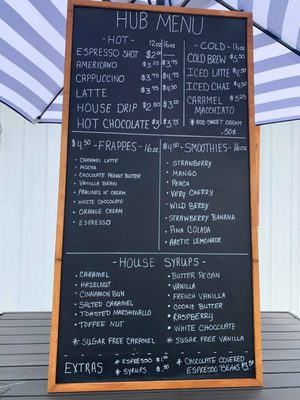 HUB MENU
- HOT - 12oz 16oz
ESPRESSO SHOT $2.00
AMERICANO
CAPPUCCINO
LATTE
HOUSE DRIP $2.50 $3.00
HOT CHOCOLATE
- COLD - 16oz
COLD BREW $5.50
ICED LATTE
ICED CHAI
CARAMEL MACCHIATO $5.25
* ADD SWEET CREAM .50¢
$4.50 - FRAPPES - 16oz
CARAMEL LATTE
MOCHA
CHOCOLATE PEANUT BUTTER
VANILLA BEAN
PRALINES N' CREAM
WHITE CHOCOLATE
ORANGE CREAM
ESPRESSO
$4.50 - SMOOTHIES - 16oz
STRAWBERRY
MANGO
PEACH
VERY CHERRY
WILD BERRY
STRAWBERRY BANANA
PINA COLADA
ARCTIC LEMONADE
- HOUSE SYRUPS -
CARAMEL
HAZELNUT
CINNAMON BUN
SALTED CARAMEL
TOASTED MARSHMALLO
TOFFEE NUT
* SUGAR FREE CARAMEL
BUTTER PECAN
VANILLA
FRENCH VANILLA
COOKIE BUTTER
RASPBERRY
WHITE CHOCOLATE
* SUGAR FREE VANILLA
EXTRAS
* ESPRESSO $1.00
* SYRUPS $.50
* CHOCOLATE COVERED
ESPRESSO BEANS